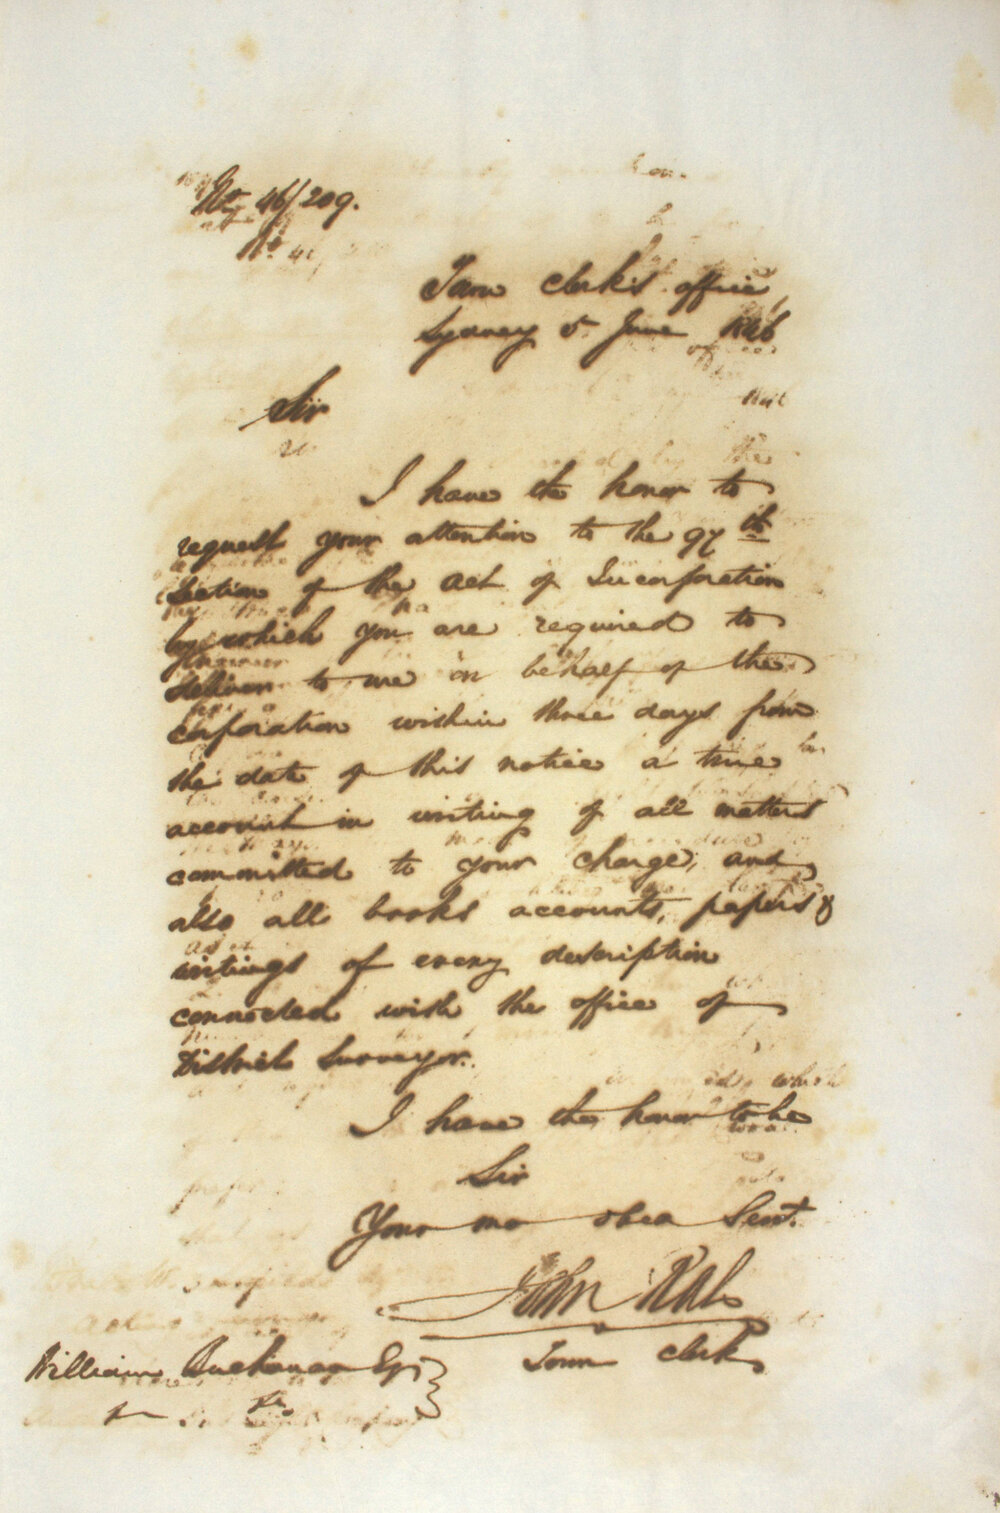 No 46/209.
Town Clerk's office,
Sydney 5 June 1846
Sir
I have the honor to
request your attention to the 97th
Section of the Act of Incorporation
by which you are required to
deliver to me on behalf of the
Corporation within three days from
the date of this notice a true
account in writing of all matters
committed to your charge, and
also all books accounts, papers &
writings of every description
connected with the office of
District Surveyor.
I have the honor to be
Sir
Your mo obed Servt.
John
Town Clerk
William Buchanan Esq